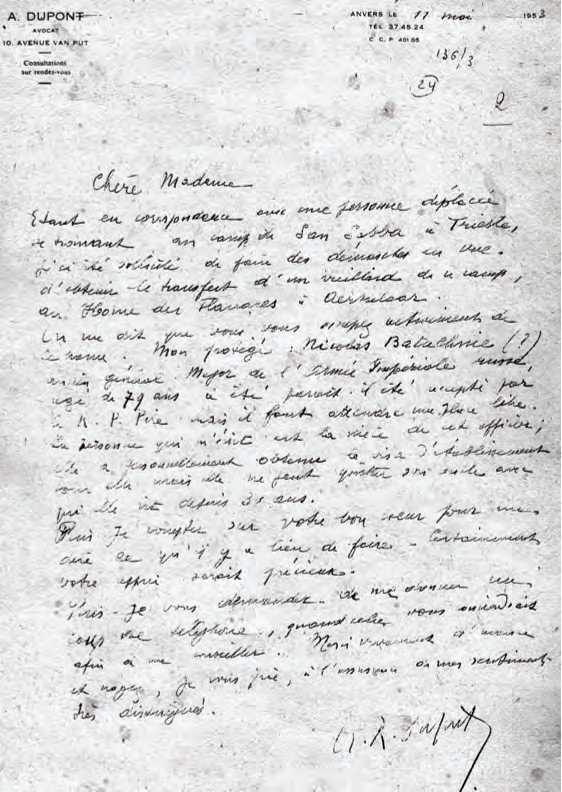 A. DUPONT
AVOCAT
10, AVENUE VAN PUT
Consultations
sur rendez-vous
ANVERS LE 11 mai 1953
TEL. 37.45.24
C. C. P. 401 56
136/3
24
2
Chère Madame
Etant en correspondance avec une personne déplacée
se trouvant au camp de San Sabba à Trieste,
j'ai été sollicité de faire des démarches en vue
d'obtenir le transfert d'un vieillard de ce camp,
au Home de à
On me dit que vous vous occupez activement de
ce home. Mon protégé, Nicolas (?)
ancien général Major de l'Armée Impériale russe,
âgé de 79 ans a été il été accepté par
le R. P. Pire mais il faut attendre une place libre.
La personne qui m'écrit est la nièce de cet officier;
elle a personnellement obtenu le visa d'établissement
pour elle mais elle ne peut quitter son oncle avec
qui elle vit depuis 35 ans.
Puis je compter sur votre bon cœur pour me
dire ce qu'il y a lieu de faire - Certainement
votre appui serait précieux.
Puis-je vous demander de me donner un
coup de téléphone, quand cela vous conviendrait
afin de me conseiller. Merci vivement d'avance
et voyez, je vous prie, à l'assurance de mes sentiments
très distingués.